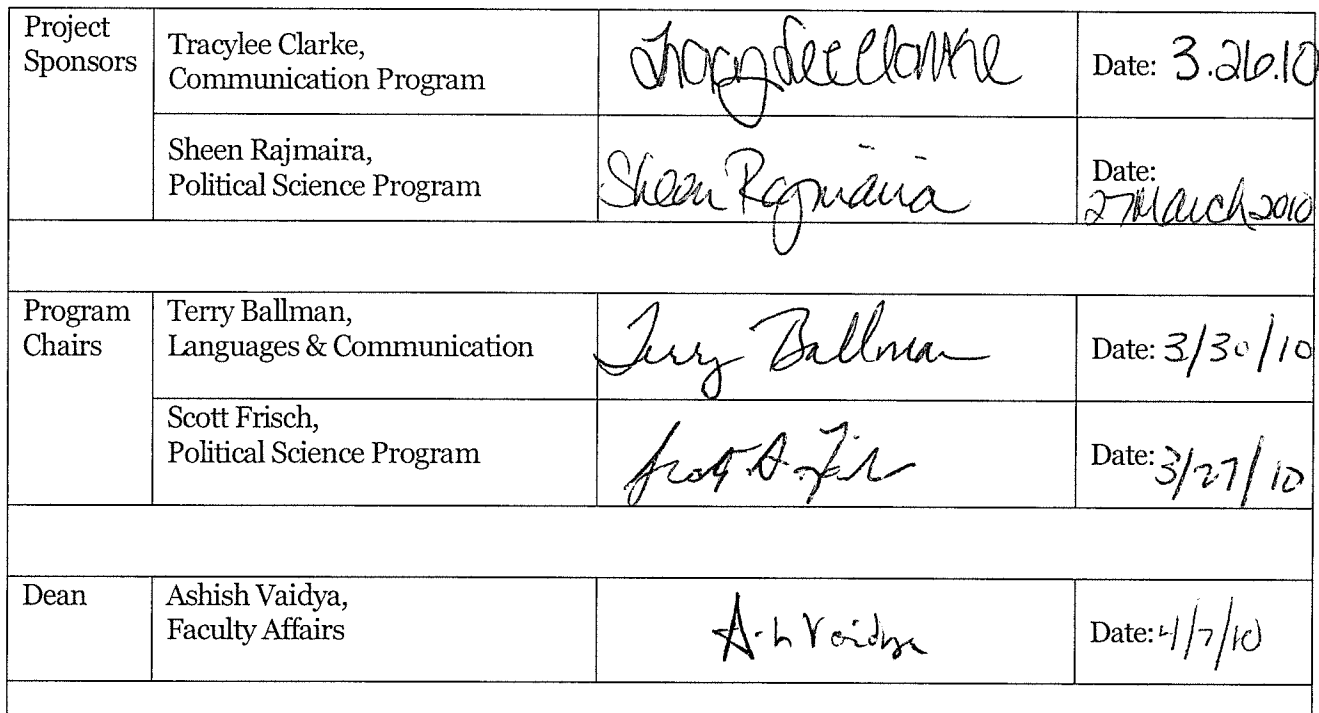 Project
Sponsors
Tracylee Clarke,
Communication Program
Tracylee Clarke
Date: 3.26.10
Sheen Rajmaira,
Political Science Program
Sheen Rajmaira
Date:
27 March 2010
Program
Chairs
Terry Ballman,
Languages & Communication
Terry Ballman
Date: 3/30/10
Scott Frisch,
Political Science Program
Date: 3/27/10
Dean
Ashish Vaidya,
Faculty Affairs
Vaidya
Date: 4/7/10